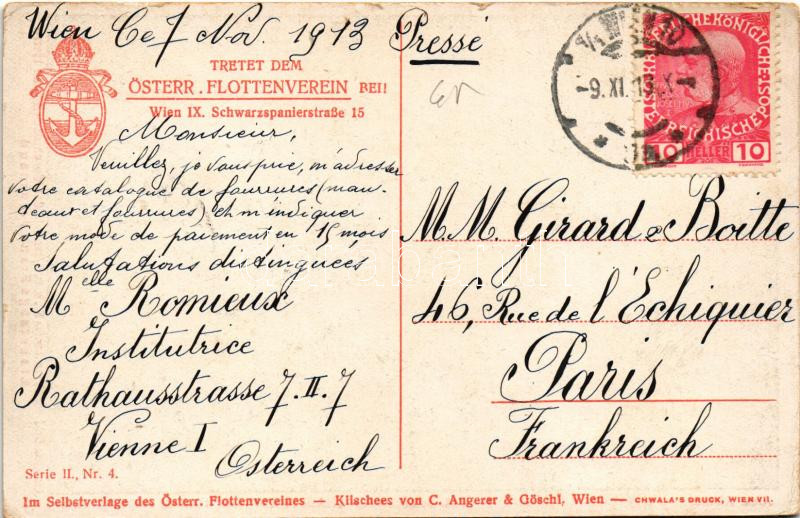 Wien Ce 7 Nov. 1913 Pressé
TRETET DEM
ÖSTERR. FLOTTENVEREIN BEI!
Wien IX. Schwarzspanierstraße 15
Monsieur,
Veuillez, je vous prie, m'adresser
votre catalogue de fourrures (man-
teaux et fourrures) et m'indiquer
votre mode de paiement en 15 mois
Salutations distinguées
Melle Romieux
Institutrice
Rathausstrasse 7.II.7
Vienne I
Österreich
Serie II., Nr. 4.
WIEN
-9.XI.13
10 HELLER 10
M.M. Girard & Boitte
46, Rue de l'Echiquier
Paris
Frankreich
Im Selbstverlage des Österr. Flottenvereines — Klischees von C. Angerer & Göschl, Wien — CHWALA'S DRUCK, WIEN VII.